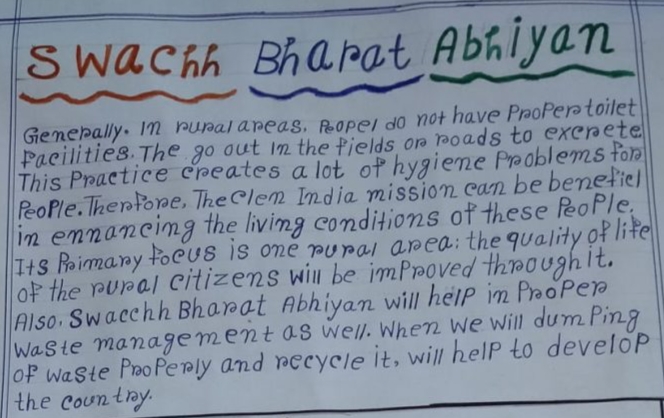 Swachh Bharat Abhiyan
Generally. In rural areas, Peopel do not have Proper toilet
facilities. The go out in the fields or roads to excrete
This Practice creates a lot of hygiene Problems for
People. Therfore, The Clen India mission can be beneficl
in ennancing the living conditions of these People.
Its Primary focus is one rural area: the quality of life
of the rural citizens will be improved through it.
Also, Swacchh Bharat Abhiyan will help in Proper
waste management as well. When we will dumping
of waste Properly and recycle it, will help to develop
the country.